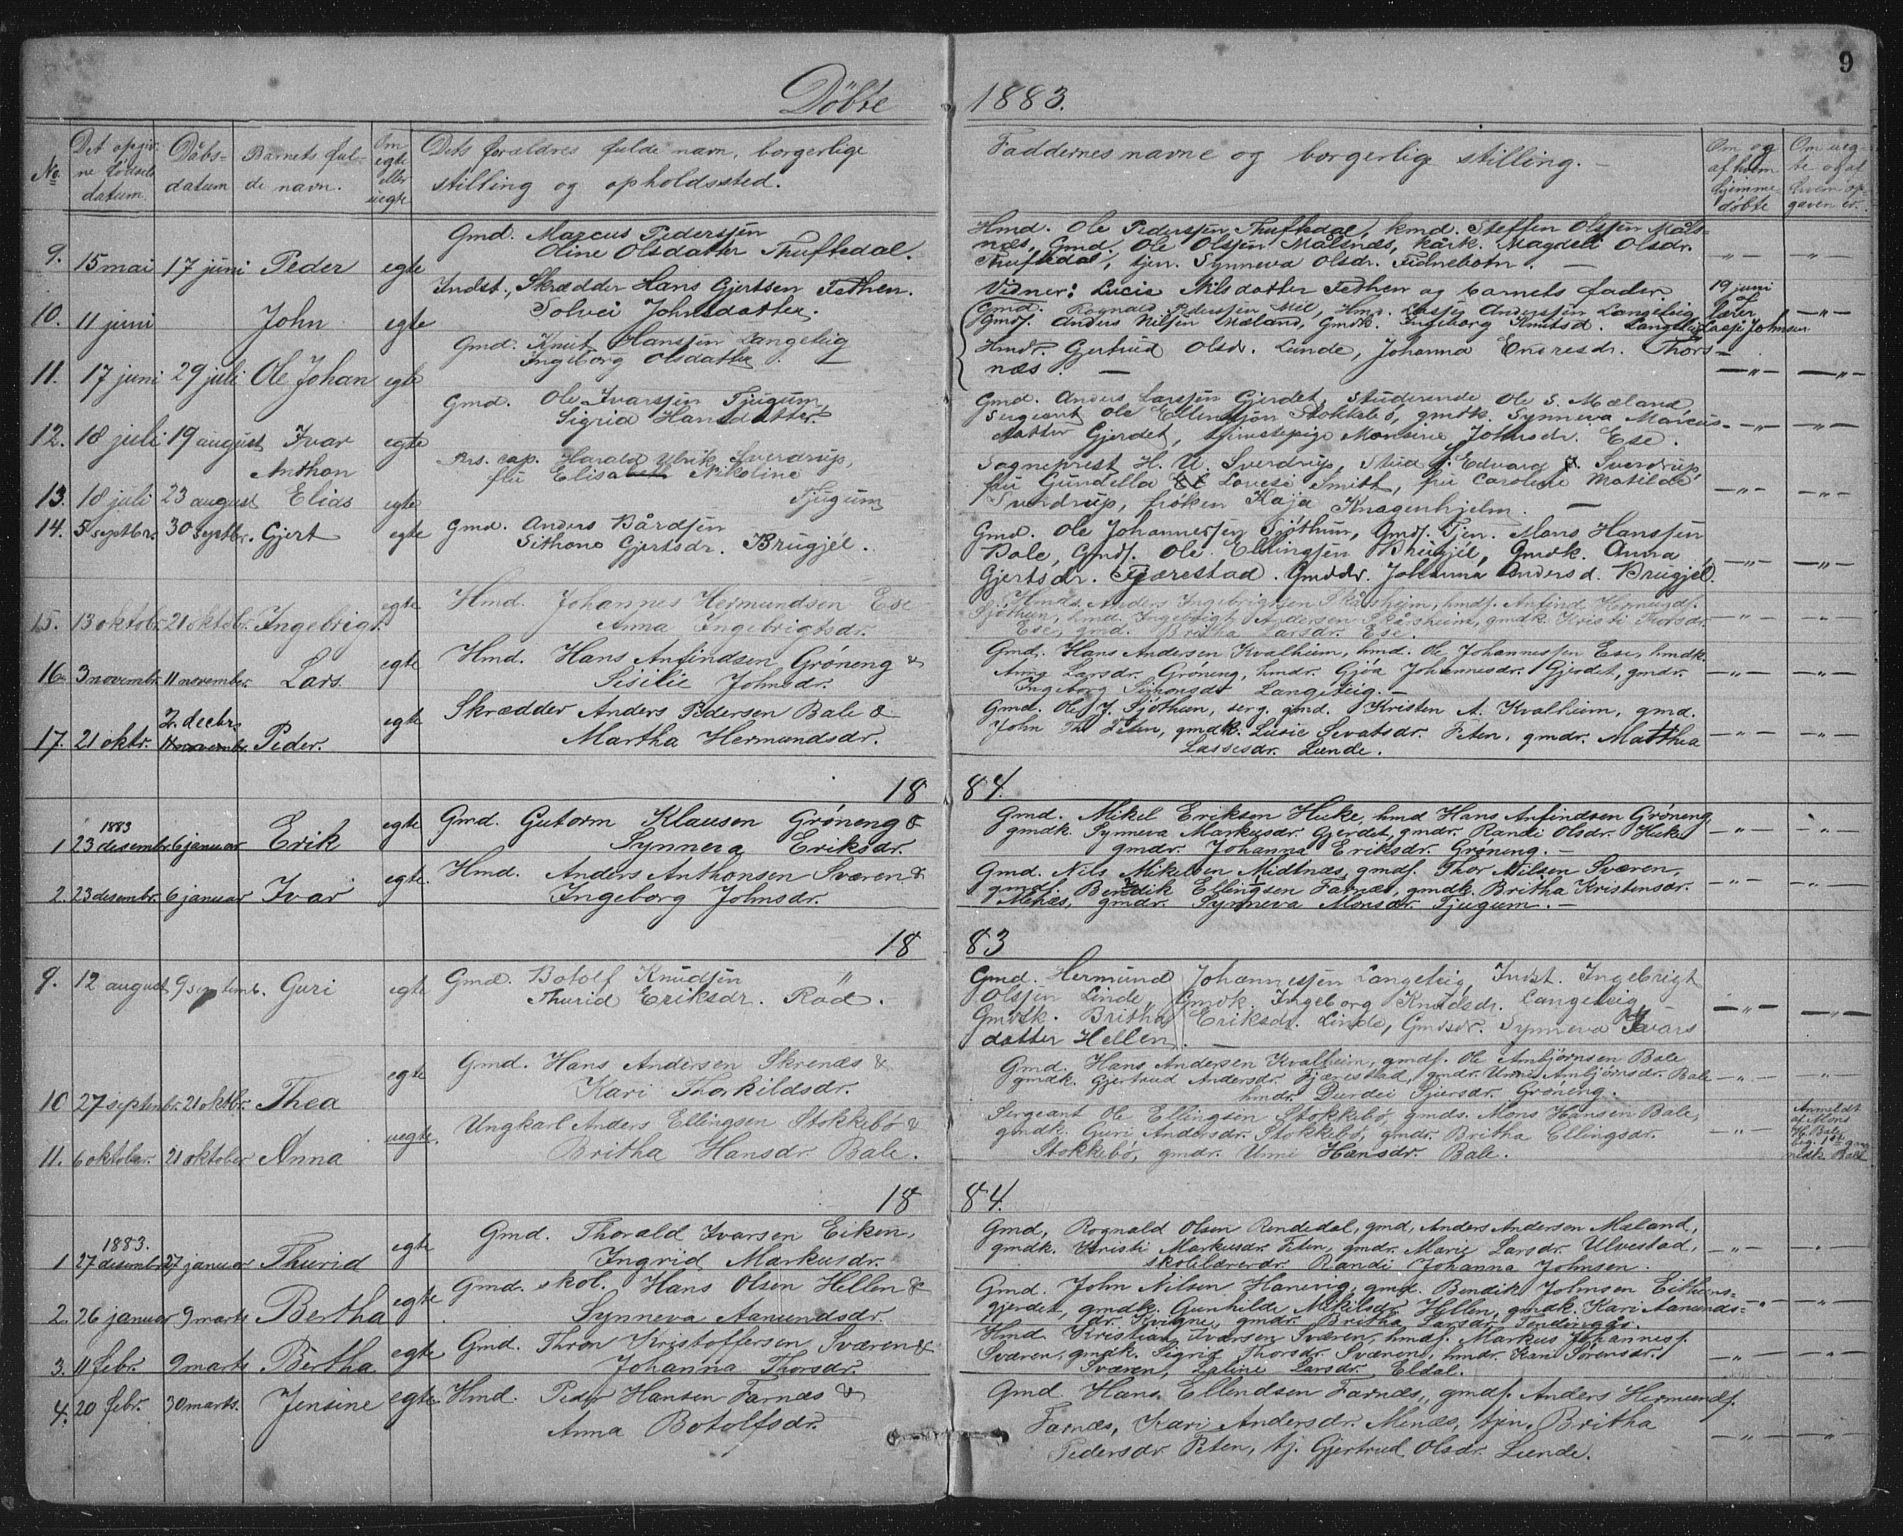 9
Døbte 1883.
No Det opgivne fødsels datum. Dåbsdatum Barnets fulde navn. Om egte eller uegte Dets forældres fulde navn, borgerlige stilling og opholdssted.
Faddernes navne og borgerlig stilling. Om og af hvem hjemmedøbte Om uegte og af hvem opgaven er.
9. 15 mai 17 juni Peder egte Gmd. Marcus Pedersjen
Oline Olsdatter Thuftedal.
Hmd. Ole Pedersjen Thuftedal, kmd. Steffen Olsjen Målsnæs, Gmd. Ole Olsjen Målsnæs, kårk. Magdeli Olsdr.
Thuftedal, tjen. Synneva Olsdr. Fidnebotn.
10. 11 juni John egte Indst., Skrædder Hans Gjertsen Fethen.
Solvei Johnsdatter.
Vidner: Lucie Nilsdatter Fedhen og barnets fader.
19 juni af Lærer Lasse Johnsen
11. 17 juni 29 juli Ole Johan egte Gmd. Knut Hansjen Langeteig
Ingeborg Olsdatter
Gmd. Rognald Pedersjen Mel, Hmd. Lasse Andersjen Langeteig
Gmdf. Anders Nilsjen Mæland, Gmdk. Ingeborg Knutsd. Langeteig
Hmdr. Gjertrud Olsdr. Lunde, Johanna Endresdr. Thorsnæs.
12. 18 juli 19 august Ivar Anthon egte Gmd. Ole Ivarsjen Tjugum,
Sigrid Hansdatter
Gmd. Anders Larsjen Gjerdet, Studerende Ole S. Mæland,
Sergeant Ole Ellensjøn Stokkebø, gmdk. Synneva Marcusdatter Gjerdet, tjenestepige Monsine Johnsdr. Ese.
13. 18 juli 23 august Elias egte Prs. cap. Harald Ulrik Sverdrup,
fru Elisa Nikoline
Tjugum
Sogneprest H. U. Sverdrup, Stud j. Edvard Sverdrup,
fru Gundella Lovise Smitt, fru Caroline Matilde
Sverdrup, frøken Kaja Knagenhjelm.
14. 5 septbr. 30 septbr. Gjert egte Gmd. Anders Bårdsjen
Sithone Gjertsdr. Brugjél.
Gmd. Ole Johannessjen Sjøthun, Gmdf. Tjen. Mons Hanssjen
Bale, Gmdf. Ole Ellingsjen Brugjél, Gmdk. Anna
Gjertsdr. Fjærestad. Gmddr. Johanna Andersd. Brugjél.
15. 13 oktobr. 21 oktobr. Ingebrigt egte Hmd. Johannes Hermundsen Ese
Anna Ingebrigtsdr.
Hmd. Anders Ingebrigtsen Skårsheim, hmdf. Anfind Hermundf.
Sjøthun, hmd. Ingebrigt Andersen Skårsheim, gmdk. Kristi Thorsdr
Ese, gmd. Britha Larsdr. Ese.
16. 3 novembr. 11 november. Lars egte Hmd. Hans Anfindsen Grøneng &
Sisilie Johnsd.
Gmd. Hans Andersen Kvalheim, hmd. Ole Johannessen Ese, hmdk.
Anna Larsdr. Grøneng, hmdr. Gjøa Johannesdr. Gjerdet, gmdr.
Ingeborg Simonsdr Langeteig.
17. 21 oktr. 2. decbr. Peder. egte Skrædder Anders Pedersen Bale &
Martha Hermundsdr.
Gmd. Ole J. Sjøthun, serg. gmd. Kristen A. Kvalheim, gmd.
John Th. Feten, gmdk. Lusie Sevatsdr. Feten, gmdr. Matthea
Lassesdr. Lunde.
1884.
1 1883 23 desembr. 6 januar Erik egte Gmd. Gutorm Klausen Grøneng &
Synneva Eriksdr.
Gmd. Mikel Eriksen Huke, hmd Hans Anfindsen Grøneng
gmdk. Synneva Markusdr. Gjerdet, gmdr. Randi Olsdr. Huke
gmdr. Johanna Eriksdr. Grøneng.
2. 23 desembr. 6 januar Ivar egte. Hmd. Anders Anthonsen Sværen &
Ingeborg Johnsdr.
Gmd. Nils Mikelsen Midtnæs, gmdf. Thor Nilsen Sværen,
gmdf. Bendik Ellingsen Farnæs, gmdk. Britha Kristensdr.
Menæs, gmdr. Synneva Monsdr. Tjugum.
1883
9. 12 august 9 septemb. Guri egte Gmd. Botolf Knudsjen "
Thurid Eriksdr. Råd.
Gmd. Hermund Johannesjen Langeteig, Indst. Ingebrigt
Olsjen Linde, Gmdk. Ingeborg Knudsdr. Langeteig,
Gmdk. Britha Eriksdr. Linde, Gmdsdr. Synneva Ivarsdatter Hellen.
10 27 septembr. 21 oktbr. Thea egte Gmd. Hans Andersen Skrenæs &
Kari Thorkildsdr.
Gmd. Hans Andersen Kvalheim, gmdf. Ole Anbjørnsen Bale
gmdk. Gjertrud Andersdr. Fjærestad, gmdr. Unni Anbjørnsdr. Bale
hmdr. Durdei Sjursdr. Grøneng.
11. 6 oktober. 21 oktober Anna uegte. Ungkarl Anders Ellingsen Stokkebø &
Britha Hansdr. Bale.
Sergeant Ole Ellingsen Stokkebø, gmds. Mons Hansen Bale,
gmdk. Guri Andersdr. Stokkebø, gmdr. Britha Ellingsdr.
Stokkebø, gmdr. Unni Hansdr. Bale.
Anmeldt af Mons H. Bale
1884.
1 1883. 27 desembr. 27 januar Thurid egte Gmd. Thorald Ivarsen Eiken,
Ingrid Markusdr.
Gmd, Rognald Olsen Rendedal, gmd, Anders Andersen Mæland,
gmdk. Kristi Markusdr. Feten, gmdr. Marie Larsdr. Ulvestad,
skolelærerdr. Randi Johanna Johnsen.
2. 26 januar 9 marts Bertha egte Gmd. skol. Hans Olsen Hellen &
Synneva Aamundsdr.
Gmd. John Nilsen Hanevig, gmd. Bendik Johnsen Eithunsgjerdet, gmdk. Gunhilde Mikilsdr Hellen, gmdk. Kari Aamundsdr. Kvigne, gmdr. Britha Larsdr. Tendingås.
3. 11 febr. 9 marts Bertha egte Gmd. Thron Kristoffersen Sværen &
Johanna Thorsdr.
Hmd Kristian Iversen Sværen, hmdf. Markus Johannesf.
Sværen, gmdk. Sigrid Thorsdr Sværen, hmdr. Kari Sørensdr.
Sværen, Eline Larsdr. Eldal.
4. 20 febr. 30 marts. Jensine egte Hmd. Peder Hansen Farnæs &
Anna Botolfsdr.
Gmd Hans Ellendsen Farnæs, gmdf. Anders Hermundf.
Farnæs, Kari Andersdr. Menæs, tjen. Britha
Pedersdr Feten, tj. Gjertrud Olsdr. Lunde.